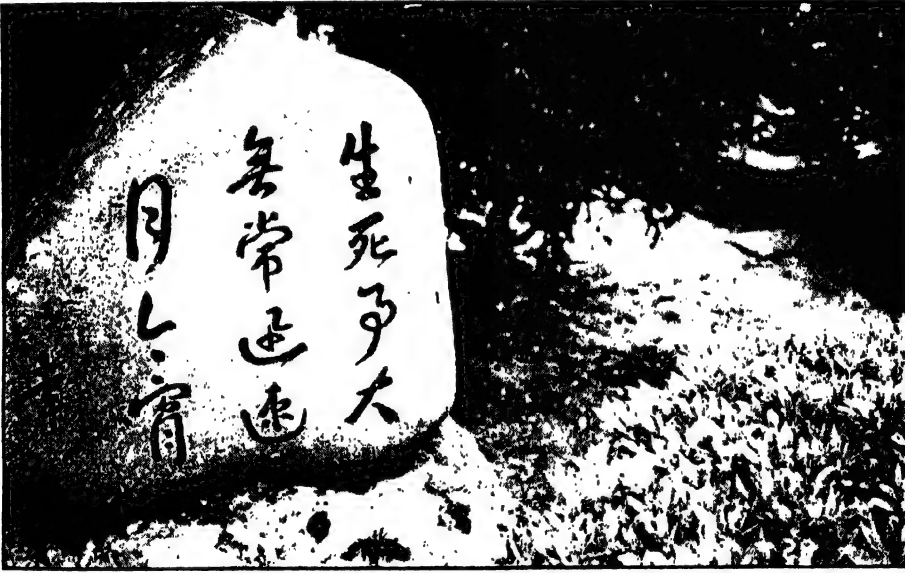 生死事大
無常迅速
月今宵